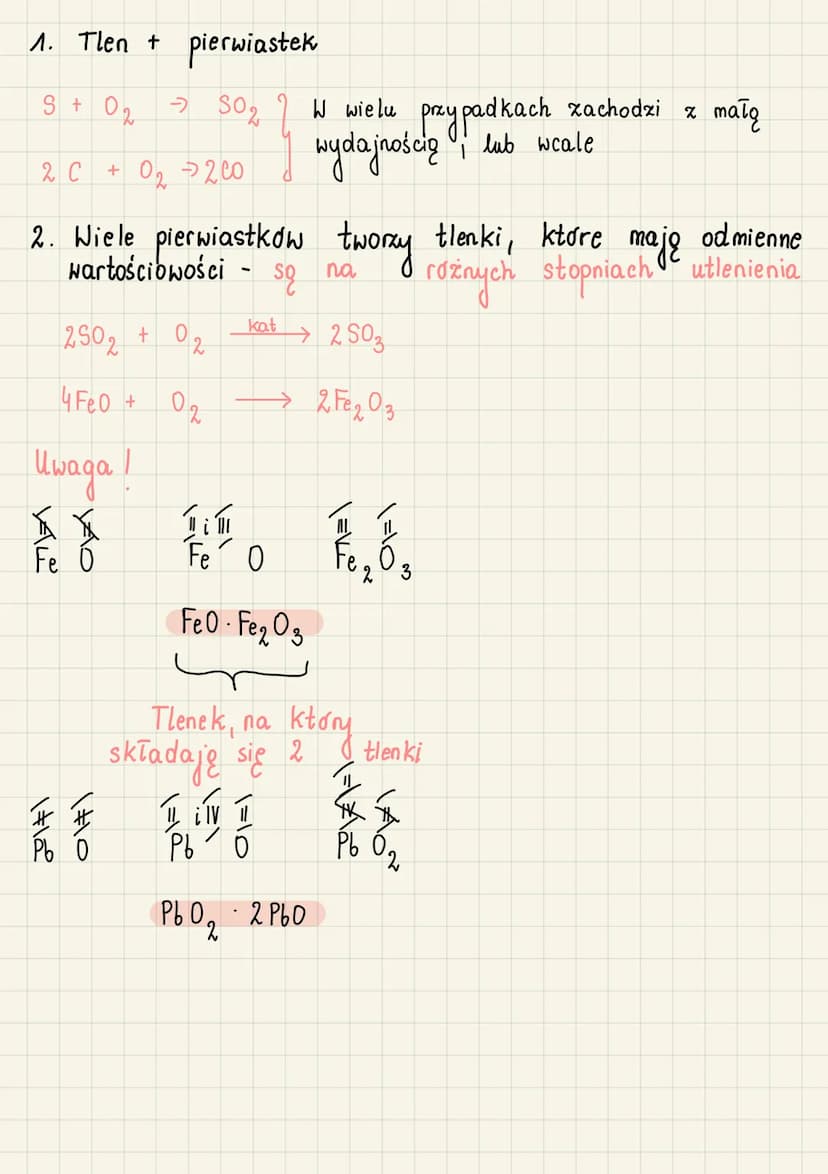 1. Tlen + pierwiastek
S + O₂ → SO₂ } W wielu przypadkach zachodzi z małą
wydajnością, lub wcale
2 C + O₂ → 2CO
2. Wiele pierwiastków tworzy tlenki, które mają odmienne
wartościowości - są na różnych stopniach utlenienia
2SO₂ + O₂ kat → 2SO₃
4FeO + O₂ → 2Fe₂O₃
Uwaga!
II II II i III III II
Fe O Fe O Fe₂O₃
FeO · Fe₂O₃
Tlenek, na który
składają się 2 tlenki
II
II II II i IV II IV II
Pb O Pb O Pb O₂
PbO₂ · 2PbO